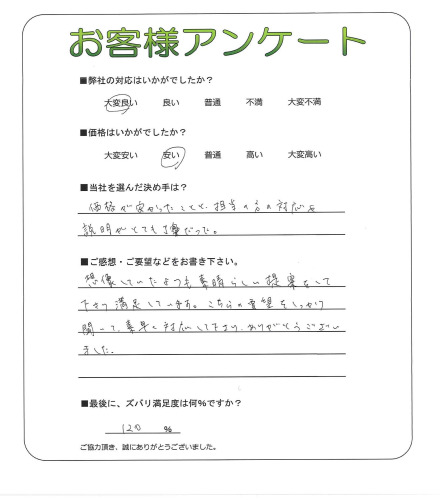 お客様アンケート
■弊社の対応はいかがでしたか？
大変良い 良い 普通 不満 大変不満
■価格はいかがでしたか？
大変安い 安い 普通 高い 大変高い
■当社を選んだ決め手は？
価格が安かったことと、担当の方の対応と
説明がとても丁寧だった。
■ご感想・ご要望などをお書き下さい。
想像していたよりも素晴らしい提案をして
下さり満足しています。こちらの要望をしっかり
聞いて、素早く対応して下さり、ありがとうござい
ました。
■最後に、ズバリ満足度は何%ですか？
120 %
ご協力頂き、誠にありがとうございました。